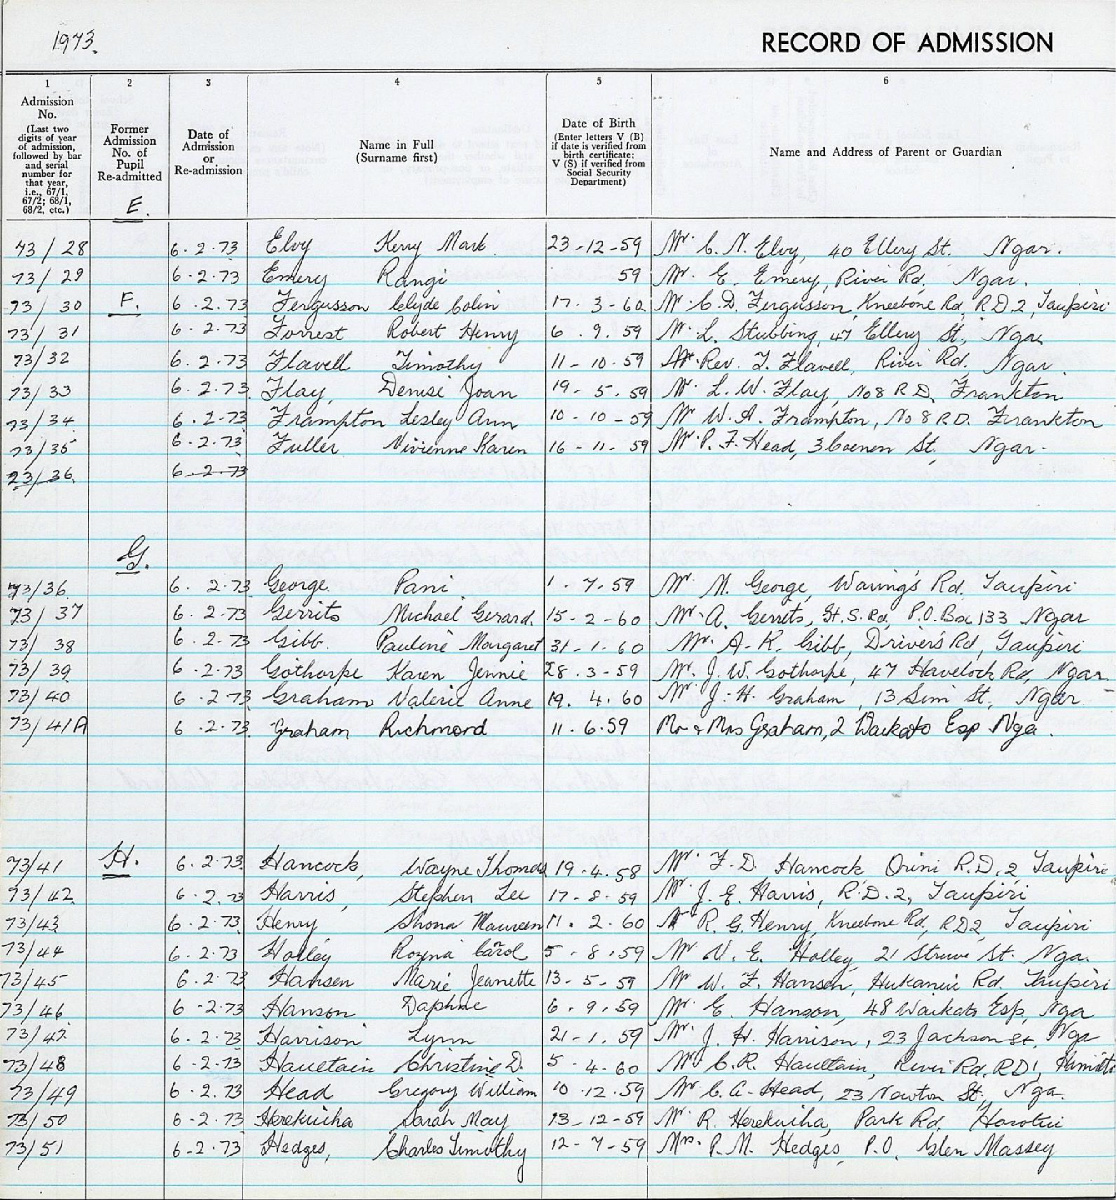 1973.
RECORD OF ADMISSION
1 2 3 4 5 6
Admission No. (Last two digits of year of admission, followed by bar and serial number for that year, i.e., 67/1, 67/2; 68/1, 68/2, etc.)
Former Admission No. of Pupil Re-admitted
Date of Admission or Re-admission
Name in Full (Surname first)
Date of Birth (Enter letters V (B) if date is verified from birth certificate; V (S) if verified from Social Security Department)
Name and Address of Parent or Guardian
E.
73/28 6.2.73 Elvy Kerry Mark 23-12-59 Mr C. N. Elvy, 40 Ellery St. Ngar.
73/29 6.2.73 Emery Rangi 59 Mr. E. Emery, River Rd, Ngar.
73/30 F. 6.2.73 Fergusson Clyde Colin 17.3-60 Mr C. D. Fergusson, Kneebone Rd, R.D.2, Taupiri
73/31 6.2.73 Forrest Robert Henry 6.9.59 Mr. L. Stubbing, 47 Ellery St, Ngar.
73/32 6.2.73 Flavell Timothy 11-10-59 Rev. T. Flavell, River Rd, Ngar.
73/33 6.2.73 Flay, Denise Joan 19.5.59 Mr L. W. Flay, No 8 R.D. Frankton
73/34 6.2.73 Frampton Lesley Ann 10-10-59 Mr W. A. Frampton, No 8 R.D. Frankton
73/35 6.2.73 Fuller Vivienne Karen 16-11-59 Mr. P. F. Head, 3 Coenen St, Ngar.
23/36 6-2-73
G.
73/36 6.2.73 George Pani 1-7-59 Mr. N. George, Waring's Rd. Taupiri
73/37 6.2.73 Gerrits Michael Gerard. 15-2-60 Mr. A. Gerrits, Gt. S. Rd, P.O. Box 133 Ngar
73/38 6.2.73 Gibb. Pauline Margaret 31-1-60 Mr. A. R. Gibb, Driver's Rd, Taupiri
73/39 6.2.73 Gothorpe Karen Jennie 28.3-59 Mr. J. W. Gothorpe, 47 Havelock Rd, Ngar
73/40 6.2.73 Graham Valerie Anne 19.4.60 Mr J. H. Graham, 13 Sim St, Ngar
73/41A 6.2.73 Graham Richmond 11.6.59 Mr & Mrs Graham, 2 Waikato Esp Nga.
73/41 H. 6.2.73 Hancock, Wayne Thomas 19.4.58 Mr. F. D. Hancock Orini R.D.2 Taupiri
73/42 6.2.73 Harris, Stephen Lee 17-8-59 Mr. J. E. Harris, R.D.2, Taupiri
73/43 6.2.73 Henry Shona Maureen 11.2.60 Mr R. G. Henry, Kneebone Rd, RD2, Taupiri
73/44 6.2.73 Holley Rozna Carol 5-8.59 Mr V. E. Holley, 21 Struve St. Nga.
73/45 6.2.73 Hansen Marie Jeanette 13-5-59 Mr W. F. Hansen, Hukanui Rd. Taupiri
73/46 6-2.73 Hanson Daphne 6.9.59 Mr. E. Hanson, 48 Waikato Esp, Nga
73/47 6.2.73 Harrison Lynn 21-1.59 Mr. J. H. Harrison, 23 Jackson St, Nga
73/48 6-2-73 Haultain Christine D. 5-4.60 Mr C. R. Haultain, River Rd, RD1, Hamilton
73/49 6.2.73 Head Gregory William 10.12.59 Mr C. A. Head, 23 Newton St, Nga.
73/50 6-2.73 Herekuiha Sarah May 13-12-59 Mr. R. Herekuiha, Park Rd, Horotiu
73/51 6-2.73 Hedges, Charles Timothy 12-7-59 Mrs. P. M. Hedges, P.O. Glen Massey